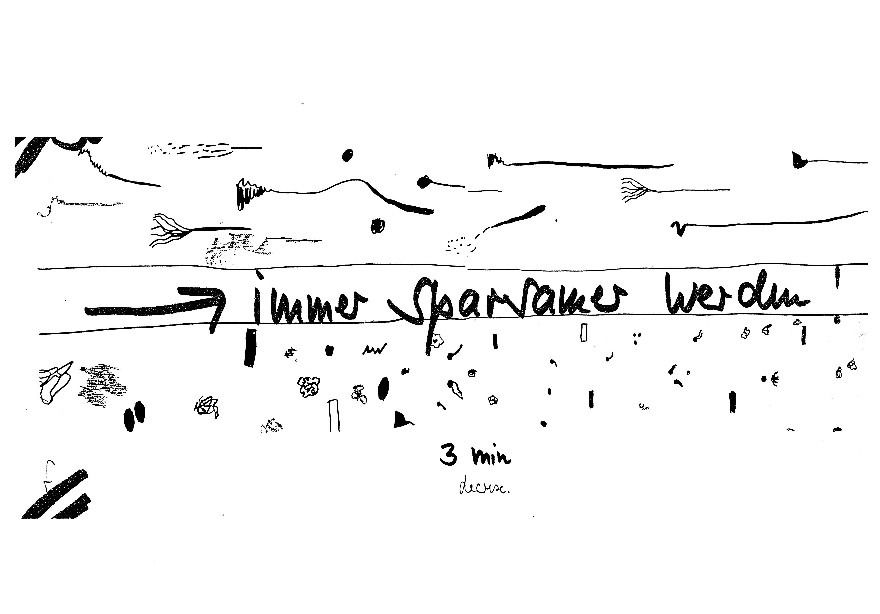 immer sparsamer werden!
3 min
decresc.